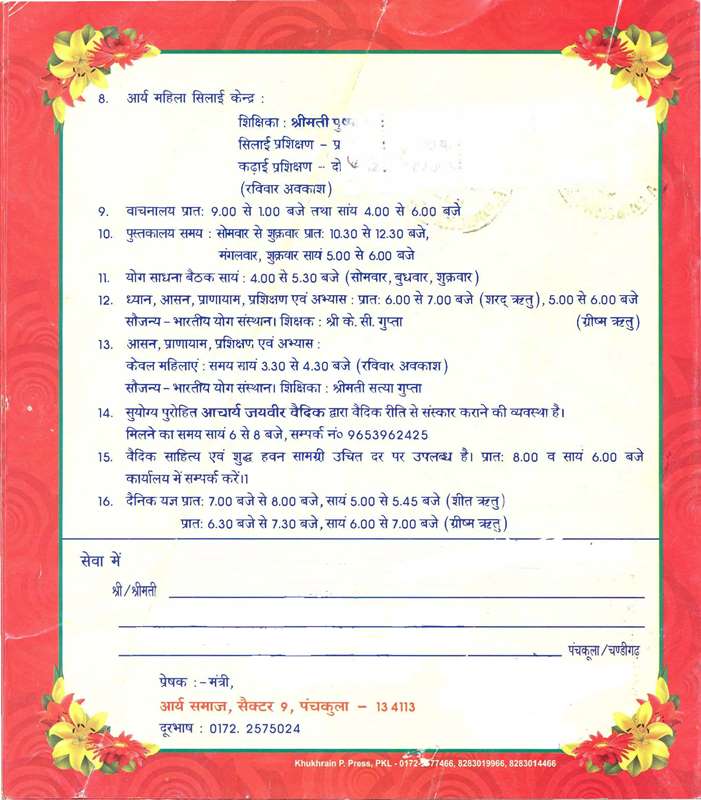 8. आर्य महिला सिलाई केन्द्र :
शिक्षिका : श्रीमती
सिलाई प्रशिक्षण –
कढ़ाई प्रशिक्षण –
(रविवार अवकाश)
9. वाचनालय प्रातः 9.00 से 1.00 बजे तथा सांय 4.00 से 6.00 बजे
10. पुस्तकालय समय : सोमवार से शुक्रवार प्रातः 10.30 से 12.30 बजे,
मंगलवार, शुक्रवार सायं 5.00 से 6.00 बजे
11. योग साधना बैठक सायं : 4.00 से 5.30 बजे (सोमवार, बुधवार, शुक्रवार)
12. ध्यान, आसन, प्राणायाम, प्रशिक्षण एवं अभ्यास : प्रातः 6.00 से 7.00 बजे (शरद् ऋतु), 5.00 से 6.00 बजे
सौजन्य – भारतीय योग संस्थान। शिक्षक : श्री के. सी. गुप्ता (ग्रीष्म ऋतु)
13. आसन, प्राणायाम, प्रशिक्षण एवं अभ्यास :
केवल महिलाएं : समय सायं 3.30 से 4.30 बजे (रविवार अवकाश)
सौजन्य – भारतीय योग संस्थान। शिक्षिका : श्रीमती सत्या गुप्ता
14. सुयोग्य पुरोहित आचार्य जयवीर वैदिक द्वारा वैदिक रीति से संस्कार कराने की व्यवस्था है।
मिलने का समय सायं 6 से 8 बजे, सम्पर्क नं० 9653962425
15. वैदिक साहित्य एवं शुद्ध हवन सामग्री उचित दर पर उपलब्ध है। प्रातः 8.00 व सायं 6.00 बजे
कार्यालय में सम्पर्क करें।1
16. दैनिक यज्ञ प्रातः 7.00 बजे से 8.00 बजे, सायं 5.00 से 5.45 बजे (शीत ऋतु)
प्रातः 6.30 बजे से 7.30 बजे, सायं 6.00 से 7.00 बजे (ग्रीष्म ऋतु)
सेवा में
श्री/श्रीमती
पंचकूला/चण्डीगढ़
प्रेषक :– मंत्री,
आर्य समाज, सैक्टर 9, पंचकुला – 134113
दूरभाष : 0172. 2575024
Khukhrain P. Press, PKL - 0172-2577466, 8283019966, 8283014466